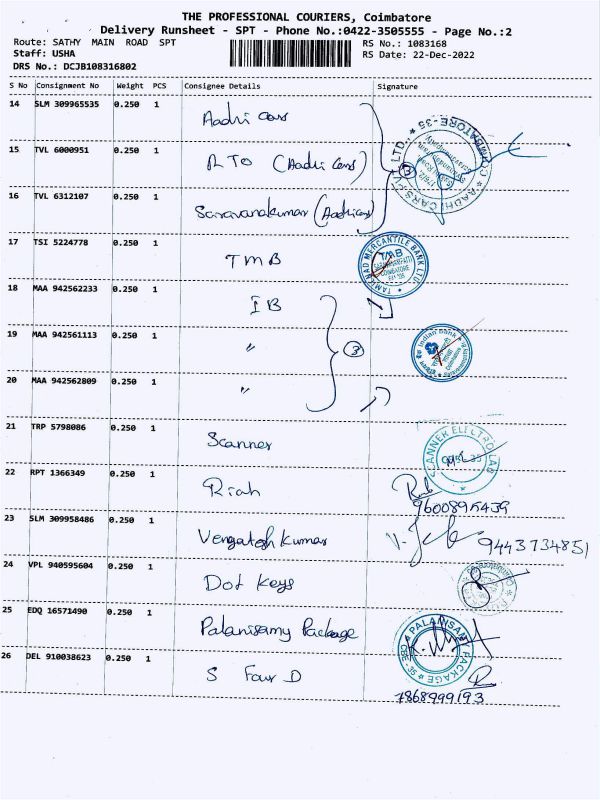 THE PROFESSIONAL COURIERS, Coimbatore
Delivery Runsheet - SPT - Phone No.:0422-3505555 - Page No.:2
Route: SATHY MAIN ROAD SPT
RS No.: 1083168
Staff: USHA
RS Date: 22-Dec-2022
DRS No.: DCJB108316802
S No Consignment No Weight PCS Consignee Details Signature
14 SLM 309965535 0.250 1 Aadhi Cars
15 TVL 6000951 0.250 1 RTO (Aadhi Cars)
16 TVL 6312107 0.250 1 Saravanakumar (Aadhi cars)
3
17 TSI 5224778 0.250 1 TMB
TAMILNAD MERCANTILE BANK LTD.
TMB
COIMBATORE
18 MAA 942562233 0.250 1 IB
19 MAA 942561113 0.250 1 "
3
Indian Bank
20 MAA 942562809 0.250 1 "
21 TRP 5798086 0.250 1 Scanner
SCANNER ELECTRO LAB
22 RPT 1366349 0.250 1 Riah
9600895439
23 SLM 309958486 0.250 1 Vengatesh Kumar
9443734851
24 VPL 940595604 0.250 1 Dot Keys
25 EDQ 16571490 0.250 1 Palanisamy Package
PALANISAMY PACKAGE
CBE-35
26 DEL 910038623 0.250 1 S Four D
7868999193